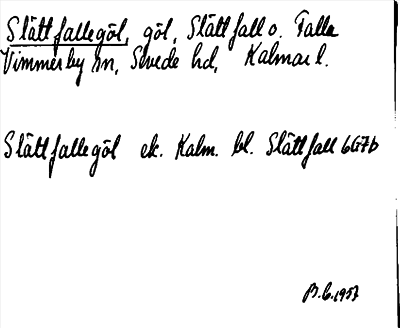 Slättfallegöl, göl, Slättfall o. Falla
Vimmerby sn, Sevede hd, Kalmar l.
Slättfallegöl ek. Kalm. bl. Slättfall 6G7b
B.G. 1957